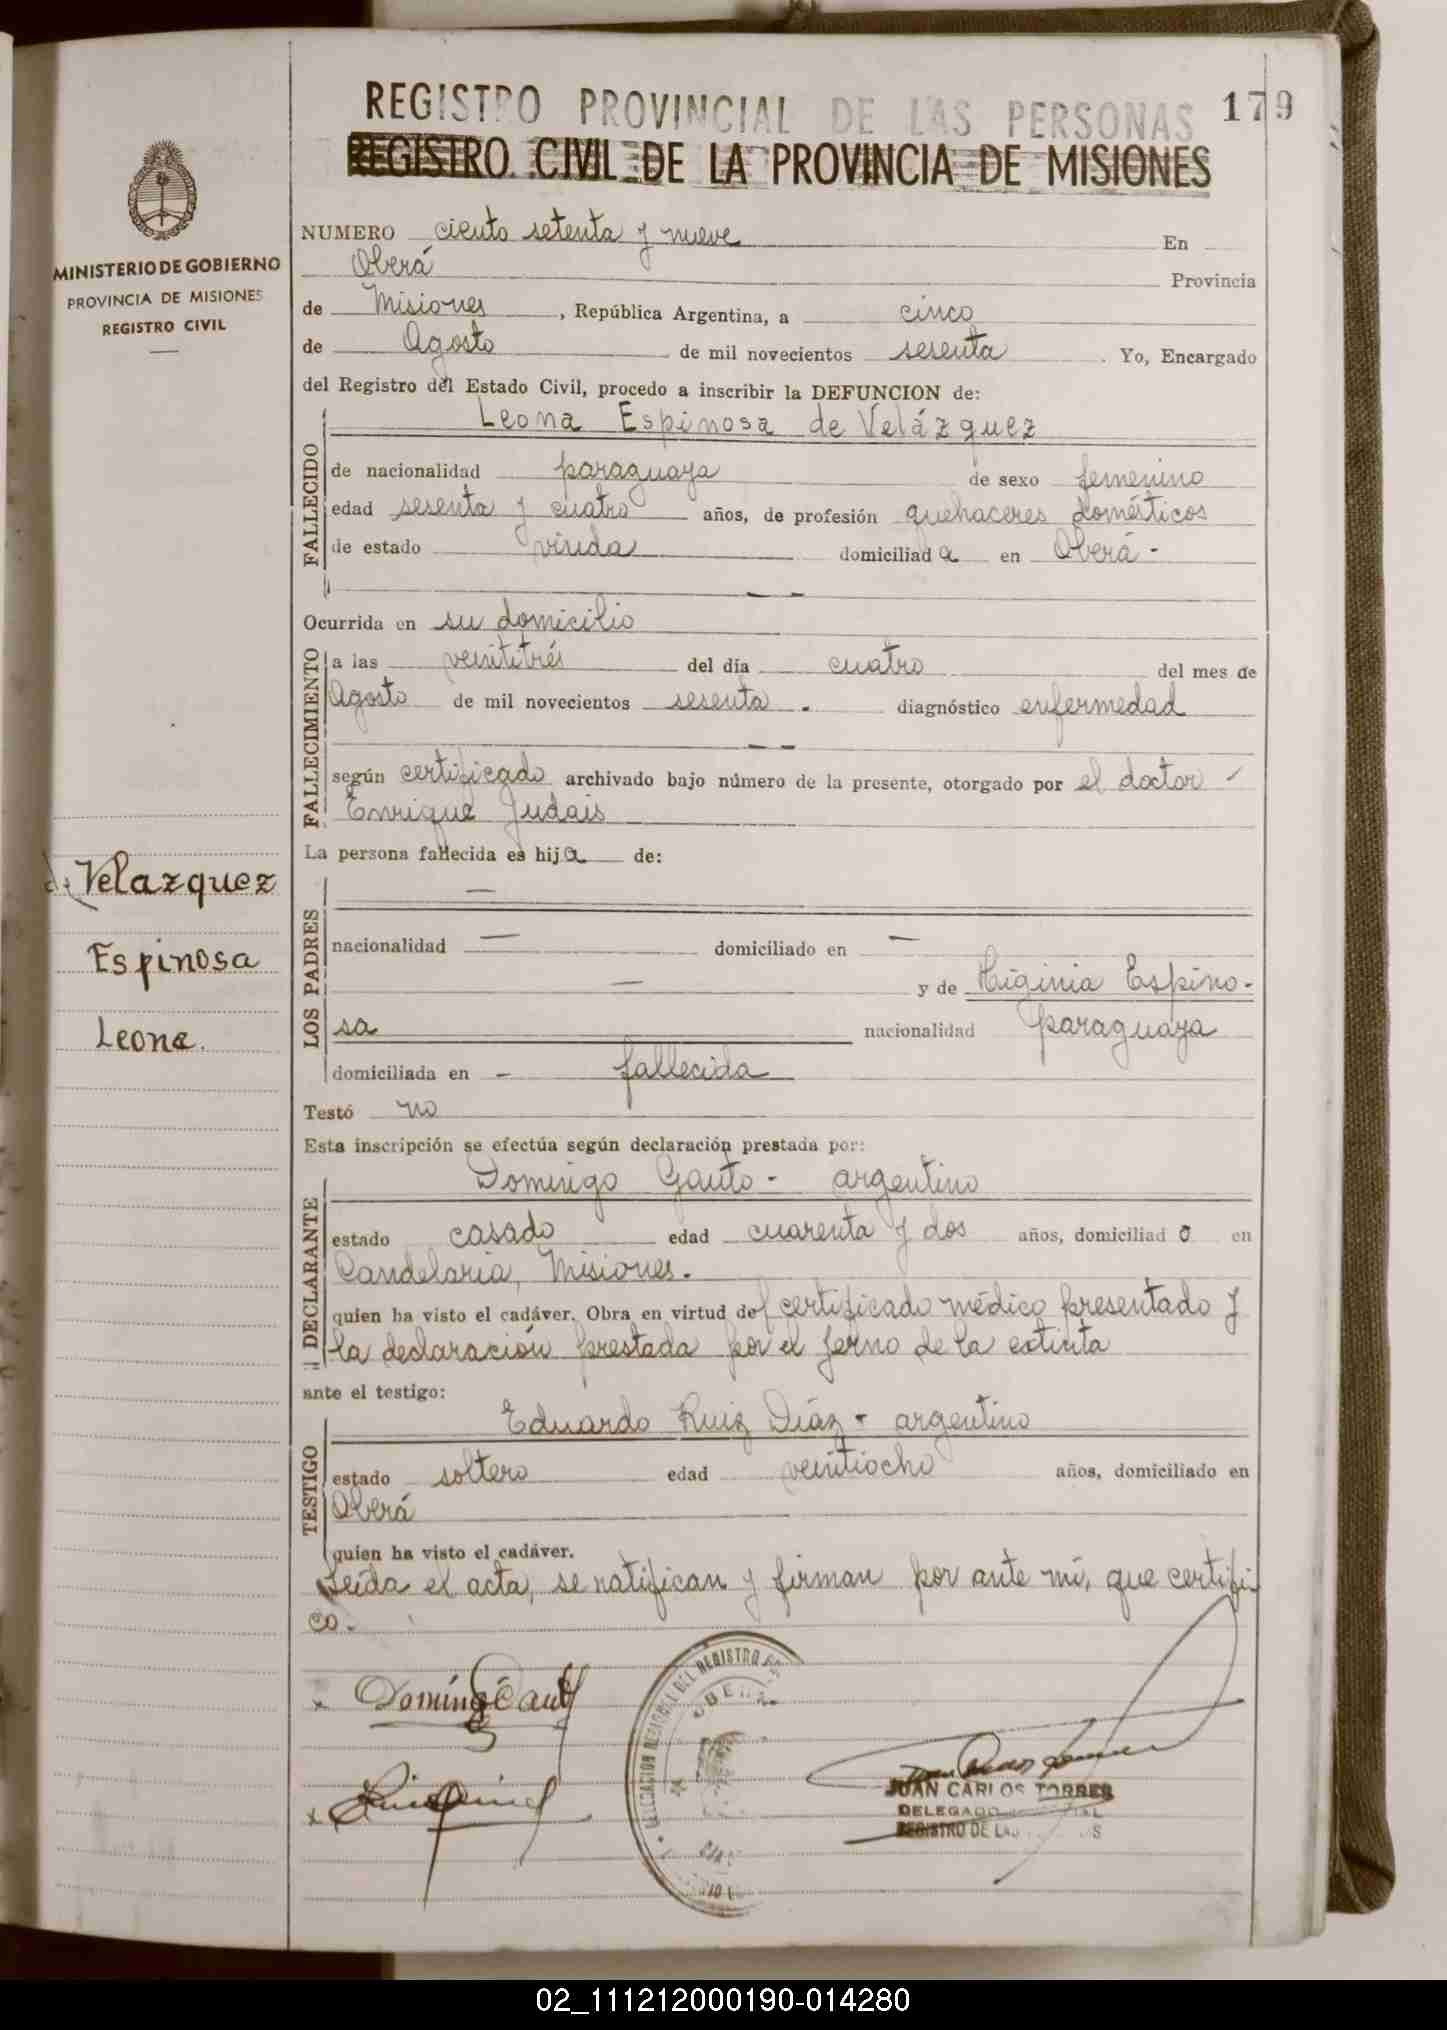 REGISTRO PROVINCIAL DE LAS PERSONAS 179
REGISTRO CIVIL DE LA PROVINCIA DE MISIONES
MINISTERIO DE GOBIERNO
PROVINCIA DE MISIONES
REGISTRO CIVIL
NUMERO ciento setenta y nueve En
Oberá Provincia
de Misiones, República Argentina, a cinco
de Agosto de mil novecientos sesenta. Yo, Encargado
del Registro del Estado Civil, procedo a inscribir la DEFUNCION de:
Leona Espinosa de Velázquez
FALLECIDO
de nacionalidad paraguaya de sexo femenino
edad sesenta y cuatro años, de profesión quehaceres domésticos
de estado viuda domiciliad a en Oberá -
Ocurrida en su domicilio
FALLECIMIENTO
a las veintitrés del día cuatro del mes de
Agosto de mil novecientos sesenta. diagnóstico enfermedad
según certificado archivado bajo número de la presente, otorgado por el doctor
Enrique Judais
La persona fallecida es hija de:
de Velazquez
Espinosa
Leona.
LOS PADRES
—
nacionalidad — domiciliado en —
— y de Higinia Espino-
sa nacionalidad paraguaya
domiciliada en - fallecida
Testó no
Esta inscripción se efectúa según declaración prestada por:
Domingo Gauto - argentino
DECLARANTE
estado casado edad cuarenta y dos años, domiciliad o en
Candelaria, Misiones.
quien ha visto el cadáver. Obra en virtud del certificado médico presentado y
la declaración prestada por el yerno de la extinta
ante el testigo:
Eduardo Ruiz Díaz - argentino
TESTIGO
estado soltero edad veintiocho años, domiciliado en
Oberá
quien ha visto el cadáver.
Leída el acta, se ratifican y firman por ante mí, que certifi
co.
JUAN CARLOS TORRES
DELEGADO
REGISTRO DE LAS
02_111212000190-014280